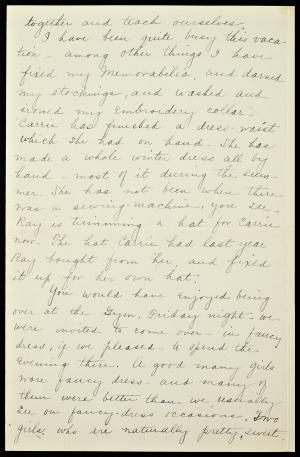 together and teach ourselves.
I have been quite busy this vaca-
tion - among other things I have
fixed my Memorabilia, and darned
my stockings, and washed and
ironed my Embroidery collar.
Carrie has finished a dress-waist
which she had on hand - She has
made a whole winter dress all by
hand - most of it during the sum-
mer. She has not been where there
was a sewing-machine, you see -
Ray is trimming a hat for Carrie
now - The hat Carrie had last year
Ray bought from her, and fixed
it up for her own hat.
You would have enjoyed being
over at the Gym, Friday night - we
were invited to come over - in fancy
dress, if we pleased - to spend the
evening there. A good many girls
wore fancy dress - and many of
them were better than we usually
see on fancy-dress occasions. Two
girls, who are naturally pretty, sweet